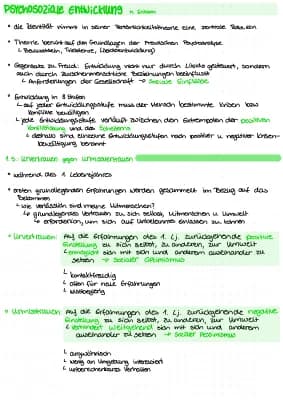 Psychosoziale Entwicklung n. Erikson
• die Identität nimmt in seiner Persönlichkeitstheorie eine zentrale Position
• Theorie beruht auf den Grundlagen der Freudschen Psychoanalyse
↳ Bewusstsein, Triebtheorie, Libidoentwicklung)
• Gegensatz zu Freud: Entwicklung nicht nur durch Libido gesteuert, sondern
auch durch zwischenmenschliche Beziehungen beeinflusst
↳ Anforderungen der Gesellschaft → soziale Einflüsse
• Entwicklung in 8 Stufen
- auf jeder Entwicklungsstufe muss der Mensch bestimmte Krisen bzw.
Konflikte bewältigen
↳ jede Entwicklungsstufe verläuft zwischen den Extrempolen der positiven
Konfliktlösung und des Scheiterns
↳ deshalb sind einzelne Entwicklungsstufen nach positiver u. negativer Krisen-
bewältigung benannt
1. S. Urvertrauen gegen Urmisstrauen
• während des 1. Lebensjahres
• ersten grundlegenden Erfahrungen werden gesammelt im Bezug auf das
Bekommen
- wie verlässlich sind meine Mitmenschen?
↳ grundlegendes Vertrauen zu sich selbst, Mitmenschen u. Umwelt
↳ erforderlich, um sich auf Unbekanntes einlassen zu können
• Urvertrauen: Auf die Erfahrungen des 1. Lj. zurückgehende positive
Einstellung zu sich selbst, zu anderen, zur Umwelt
↳ ermöglicht sich mit sich und anderen auseinander zu
setzen → sozialer Optimismus
↳ kontaktfreudig
↳ offen für neue Erfahrungen
↳ wissbegierig
• Urmisstrauen: Auf die Erfahrungen des 1. Lj. zurückgehende negative
Einstellung zu sich selbst, zu anderen, zur Umwelt
↳ verhindert weitgehend sich mit sich und anderen
auseinander zu setzen → sozialer Pessimismus
↳ argwöhnisch
↳ wenig an Umgebung interessiert
↳ unberechenbares Verhalten